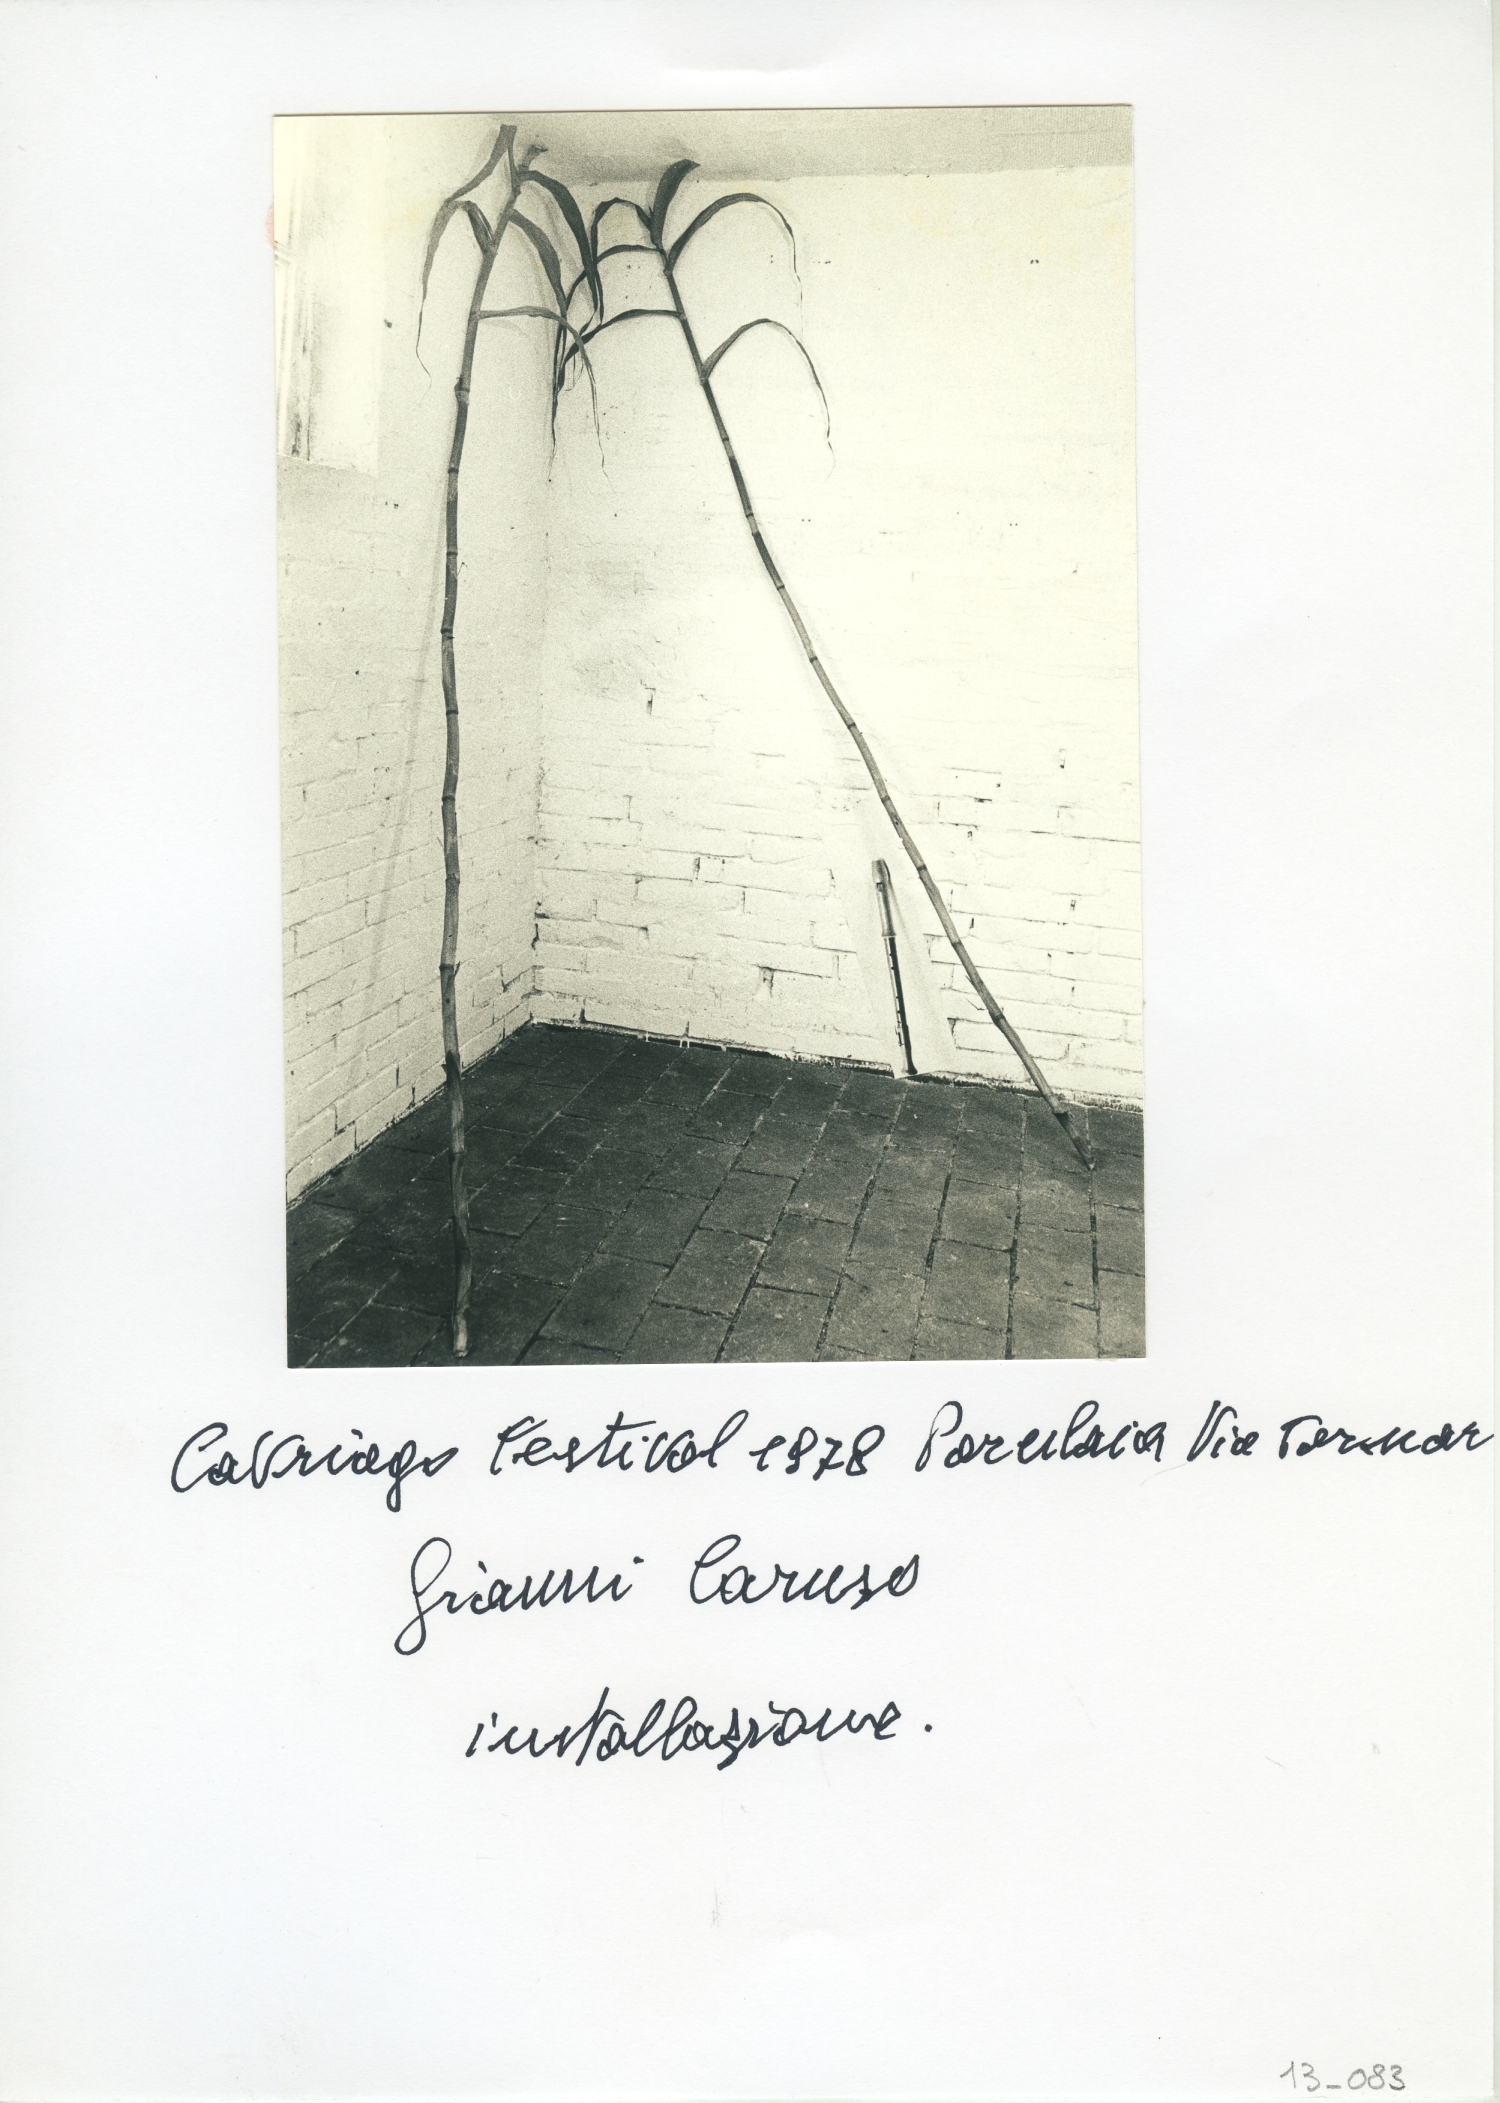 Cavriago Festival 1978 Via Tornar
Gianni Caruso
installazione.
13_083